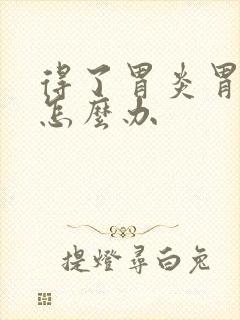 得了胃炎胃
怎麼办
提燈尋白兔